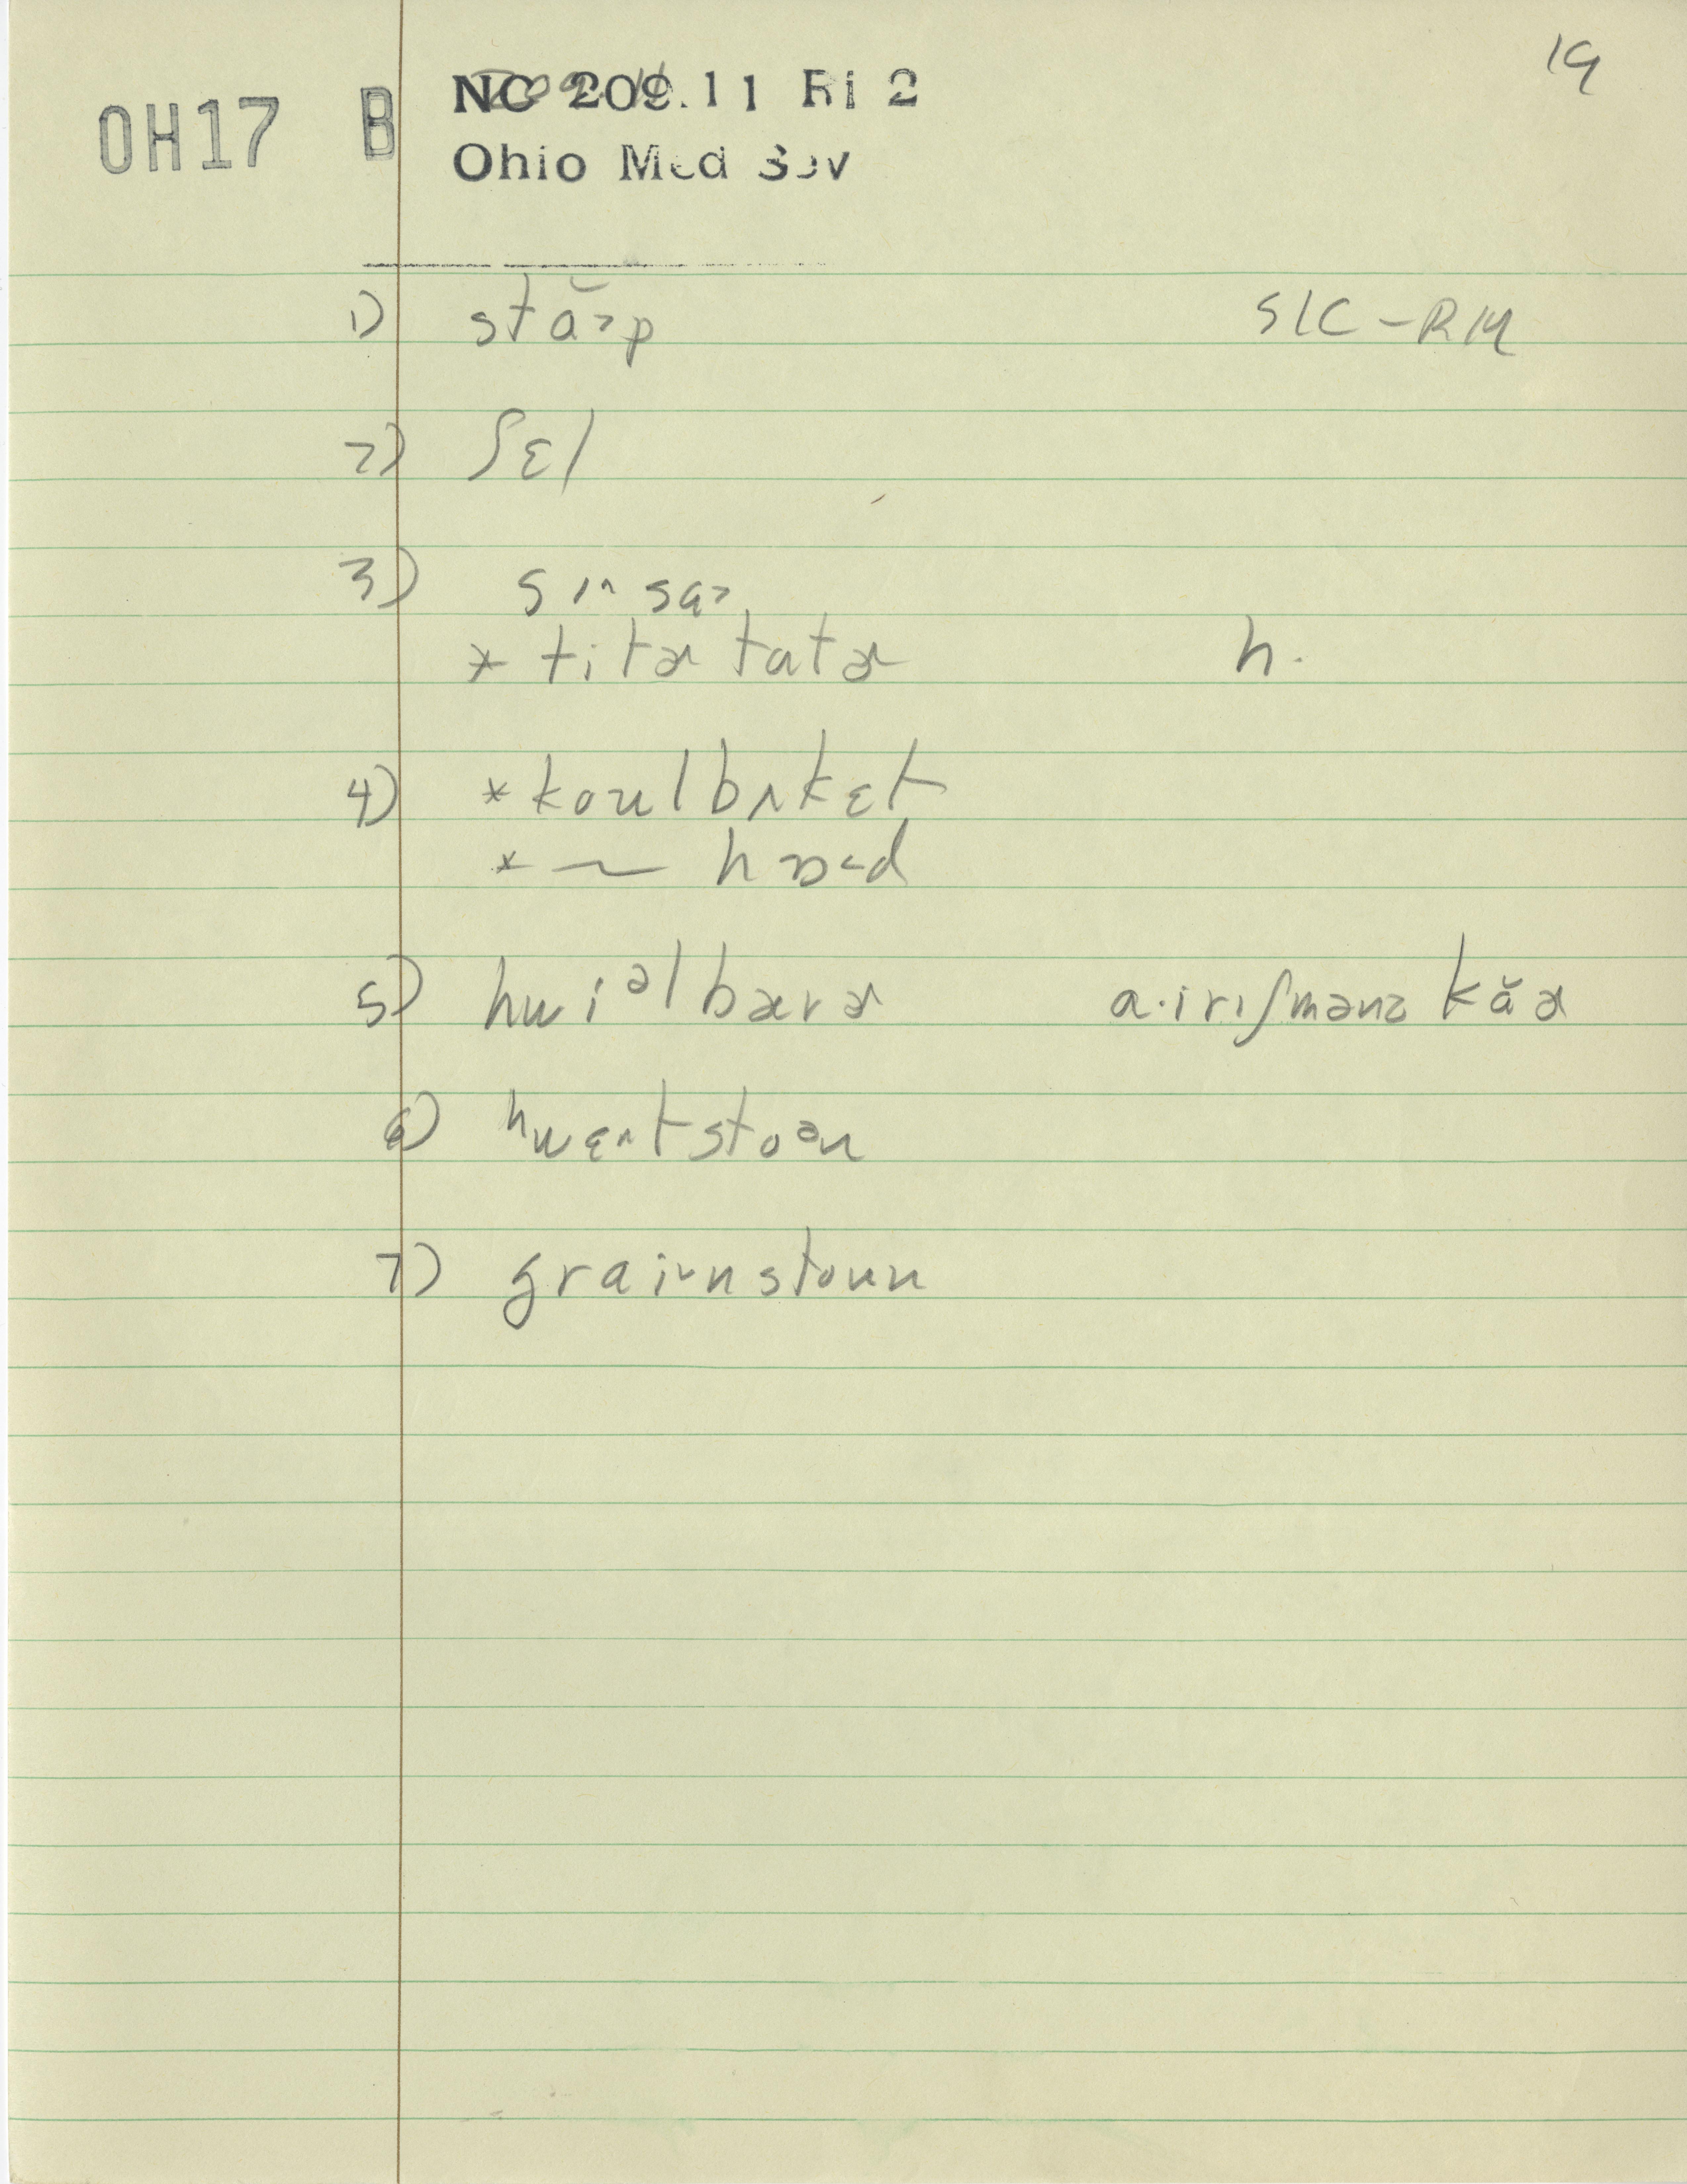 19
OH17 B NC 209.11 Ri 2
Ohio Med Sov
1) stă˃p SIC-RM
2) ʃɛl
3) sɪ^ sɑ˃
* titɚ tatɚ h.
4) * koulbʌkɛt
* ~ hɒ˂d
5) hwiᵊlbærɚ a·irɪʃmənz kăɚ
6) hwɛ^tstoən
7) graiᵛnstoun